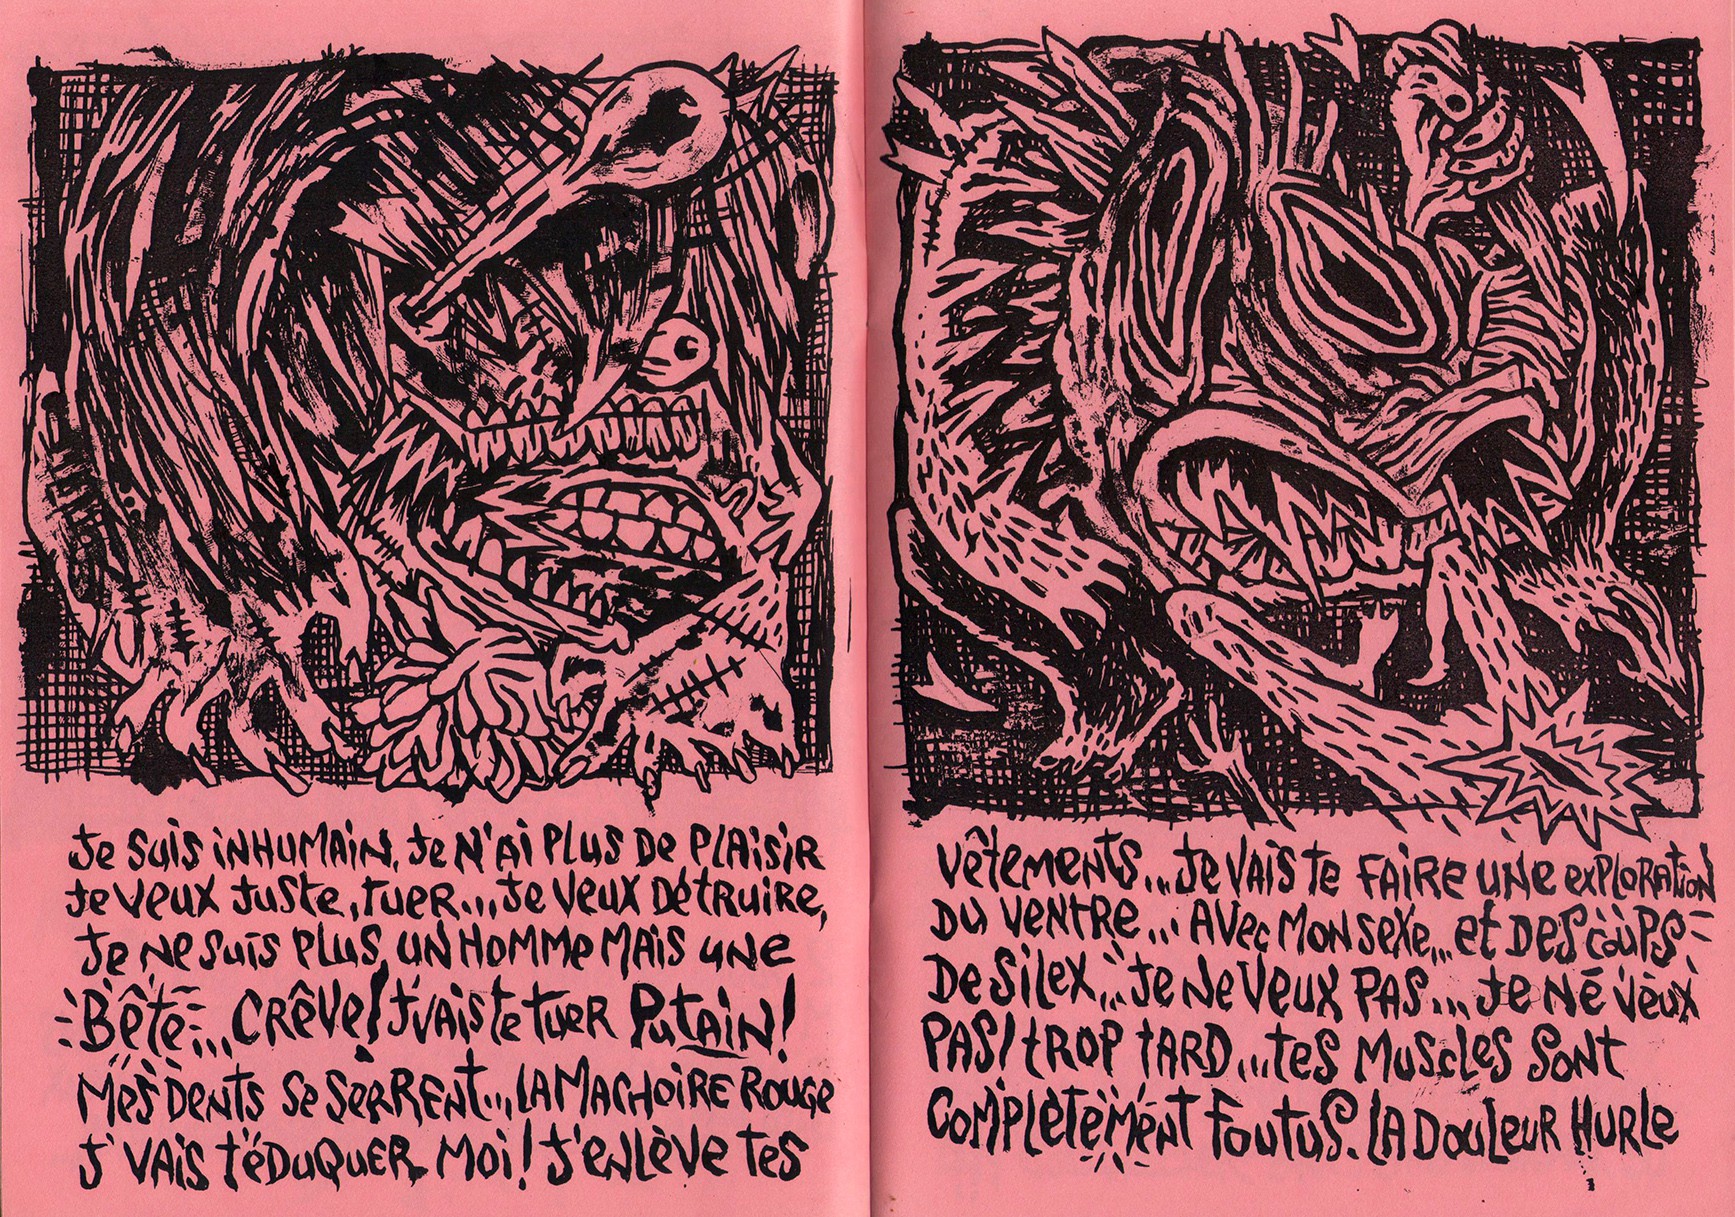 Je suis inhumain, je n'ai plus de plaisir
je veux juste, tuer... je veux détruire,
je ne suis plus un homme mais une
Bête... Crêve! j'vais te tuer Putain!
Mes dents se serrent... la machoire rouge
j'vais t'éduquer moi! j'enlève tes
vêtements... je vais te faire une exploration
du ventre... avec mon sexe... et des coups
de silex... je ne veux pas... je ne veux
pas! trop tard... tes muscles sont
complètement foutus. la douleur hurle